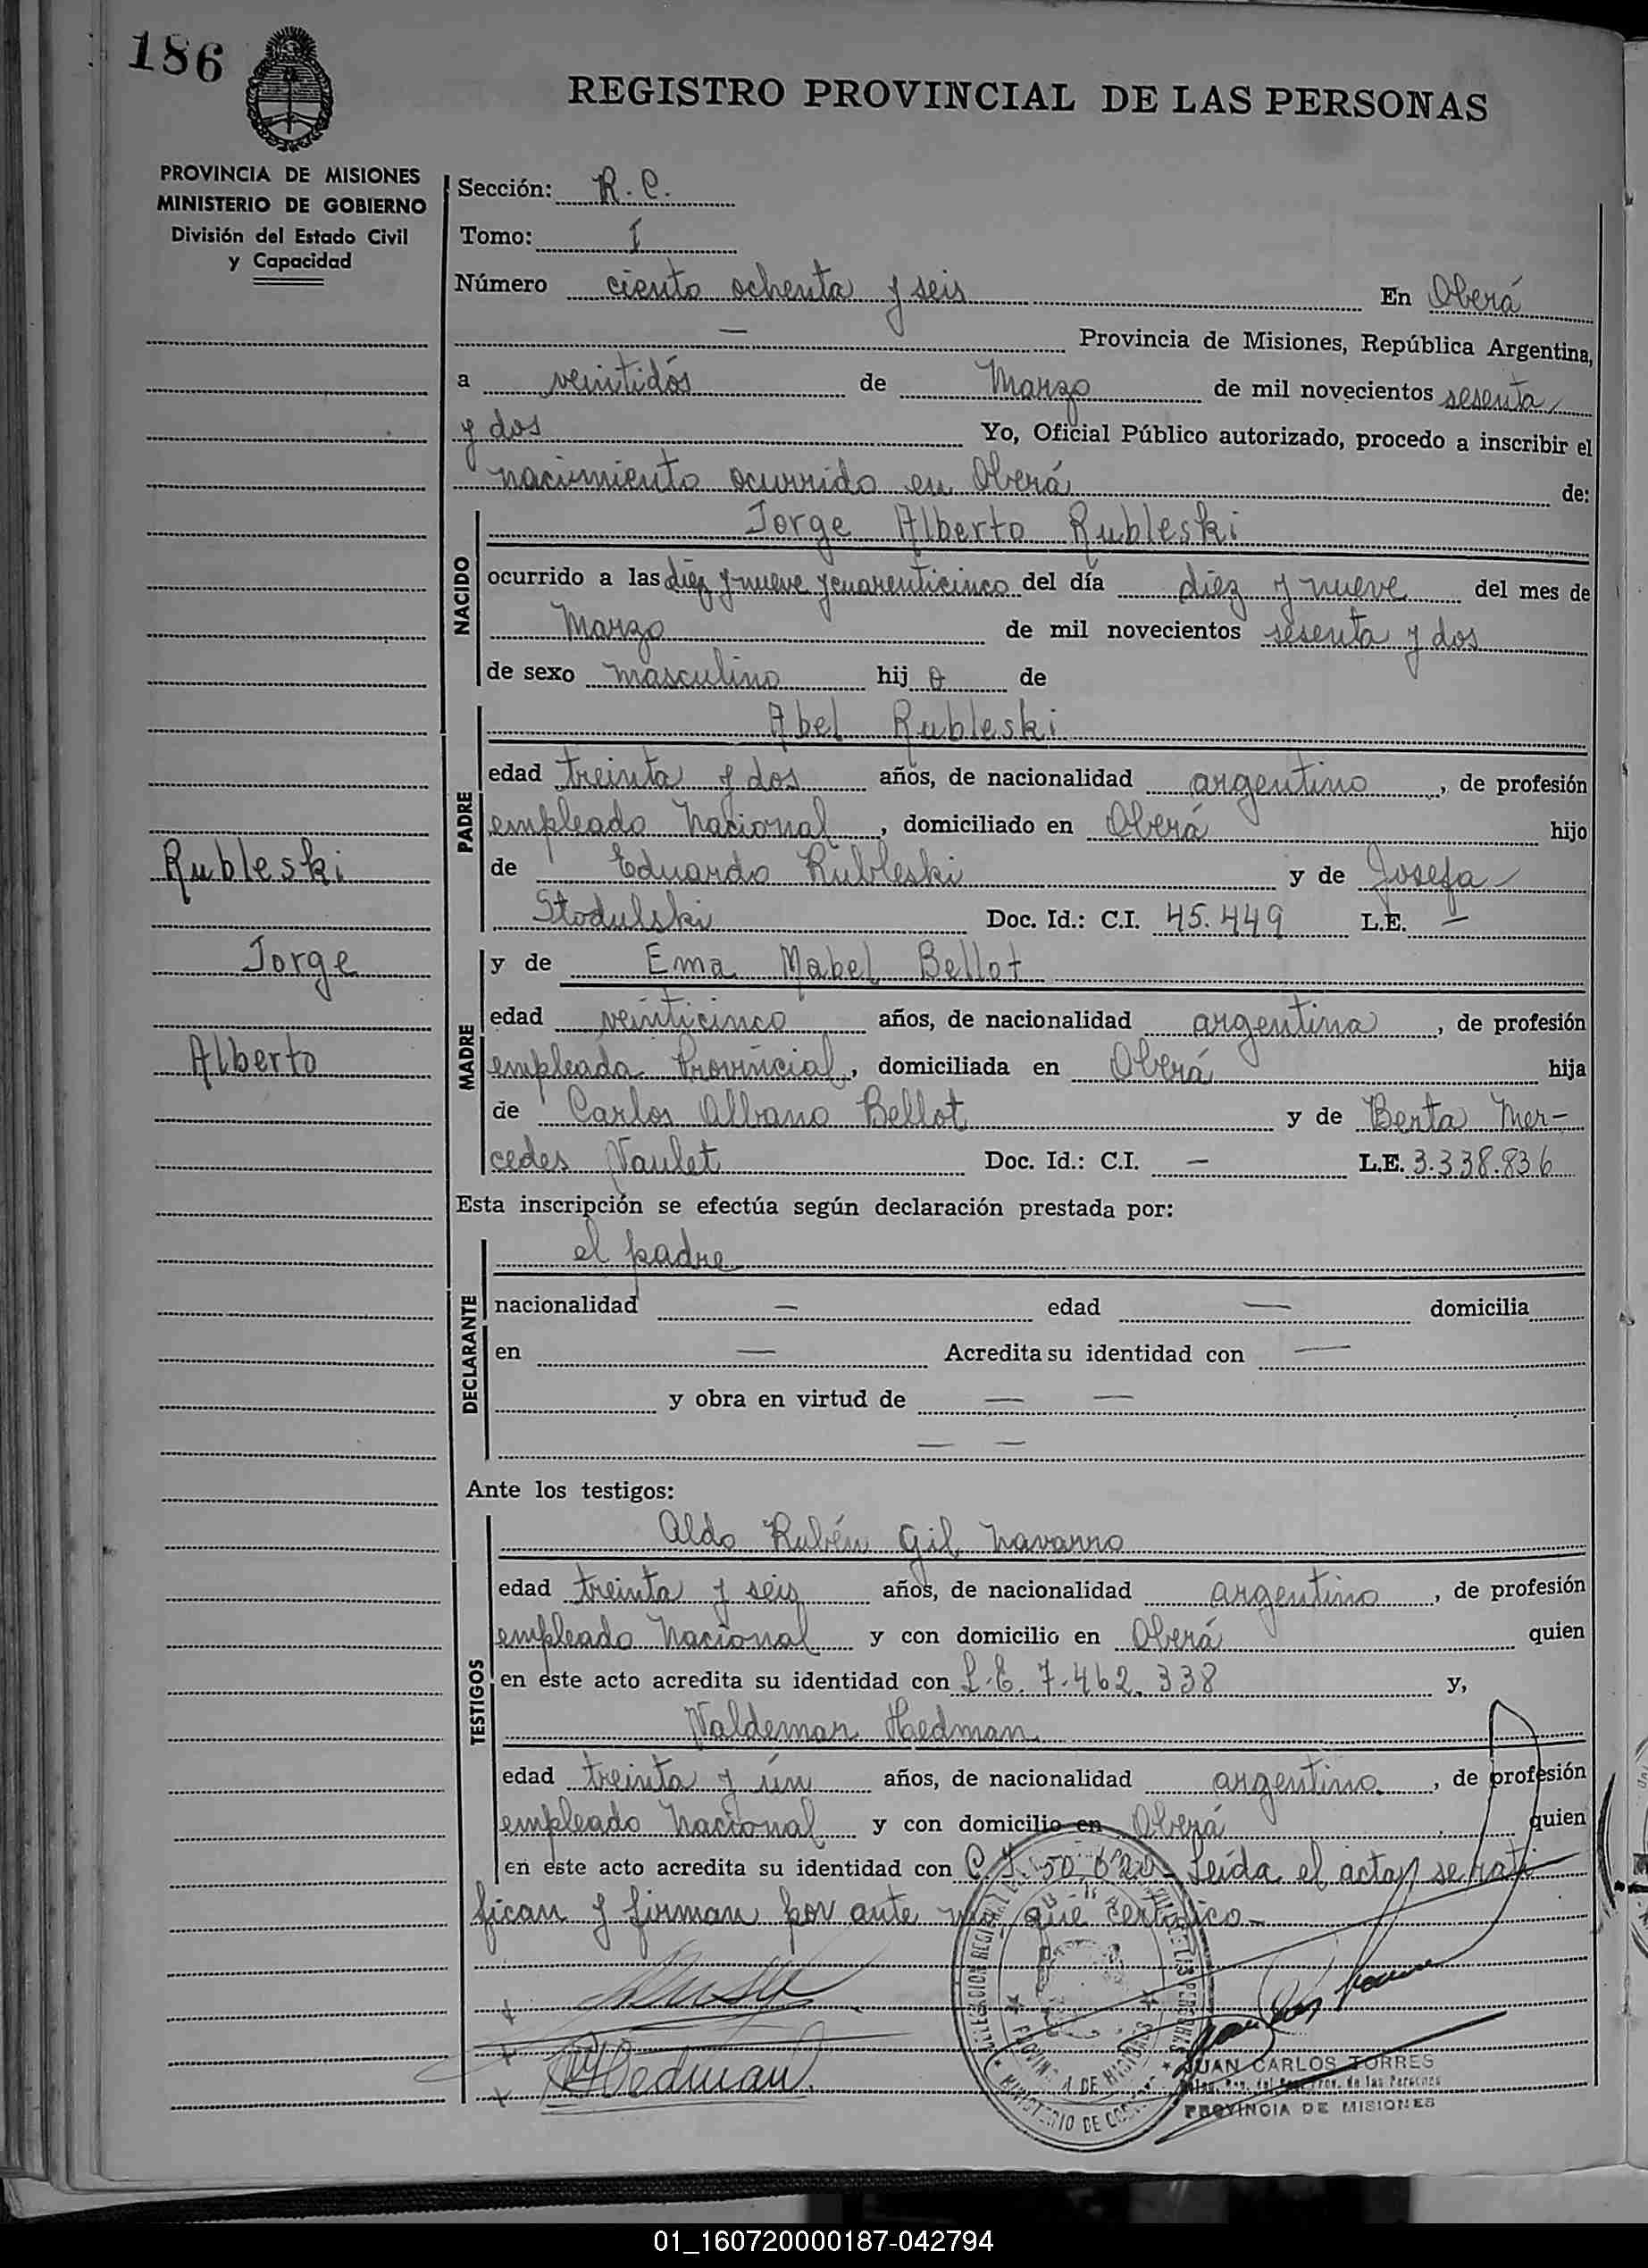 186
REGISTRO PROVINCIAL DE LAS PERSONAS
PROVINCIA DE MISIONES
MINISTERIO DE GOBIERNO
División del Estado Civil
y Capacidad
Sección: R. C.
Tomo: I
Número ciento ochenta y seis En Oberá
— Provincia de Misiones, República Argentina,
a veintidós de Marzo de mil novecientos sesenta
y dos Yo, Oficial Público autorizado, procedo a inscribir el
nacimiento ocurrido en Oberá de:
NACIDO
Jorge Alberto Rubleski
ocurrido a las diez y nueve y cuarenticinco del día diez y nueve del mes de
Marzo de mil novecientos sesenta y dos
de sexo masculino hij o de
PADRE
Abel Rubleski
edad treinta y dos años, de nacionalidad argentino, de profesión
empleado Nacional, domiciliado en Oberá hijo
de Eduardo Rubleski y de Josefa
Stodulski Doc. Id.: C.I. 45.449 L.E. —
Rubleski
Jorge
Alberto
MADRE
y de Ema Mabel Bellot
edad veinticinco años, de nacionalidad argentina, de profesión
empleada Provincial, domiciliada en Oberá hija
de Carlos Albano Bellot y de Berta Mer-
cedes Vaulet Doc. Id.: C.I. — L.E. 3.338.836
Esta inscripción se efectúa según declaración prestada por:
DECLARANTE
el padre
nacionalidad — edad — domicilia
en — Acredita su identidad con —
y obra en virtud de — —
— —
Ante los testigos:
TESTIGOS
Aldo Rubén Gil Navarro
edad treinta y seis años, de nacionalidad argentino, de profesión
empleado Nacional y con domicilio en Oberá quien
en este acto acredita su identidad con L.E. 7.462.338 y,
Valdemar Hedman
edad treinta y ún años, de nacionalidad argentino, de profesión
empleado Nacional y con domicilio en Oberá quien
en este acto acredita su identidad con C.I. 50 Leída el acta, se rati
fican y firman por ante mí, que certifico —
Hedman
JUAN CARLOS TORRES
PROVINCIA DE MISIONES
01_160720000187-042794